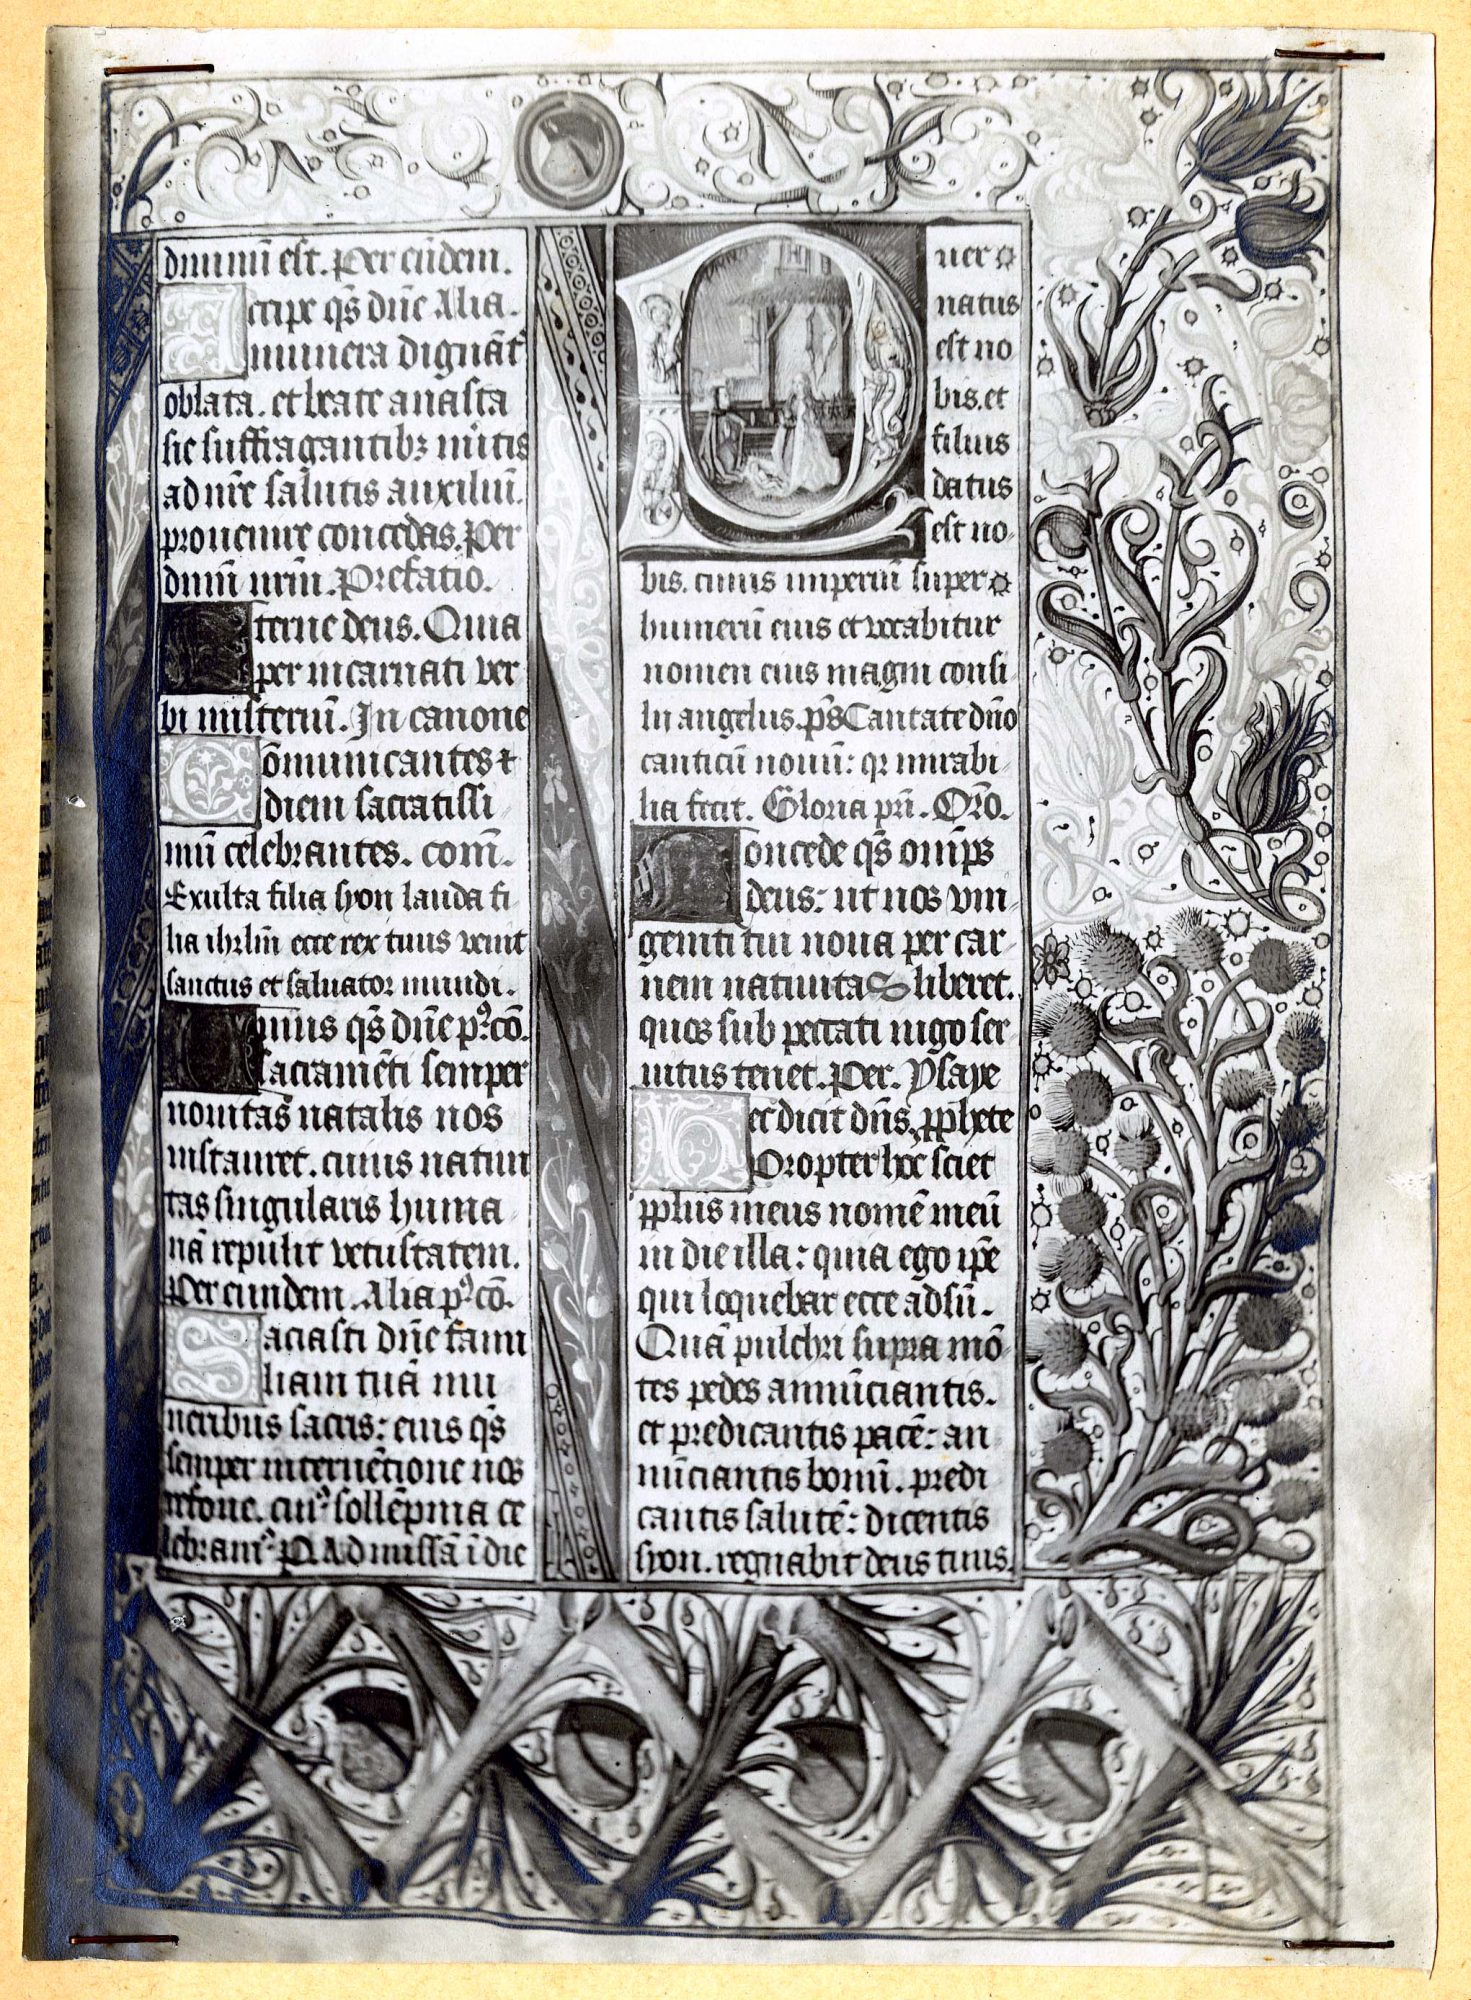 diuinū est. Per eūdem.
Accipe q̄s dn̄e Alia.
munera dignāt᷑
oblata. et beate anasta
sie suffragantibꝫ m̄itis
ad nr̄e salutis auxiliū.
prouenire concedas. Per
dnm̄ nrm̄. Prefatio.
Eterne deus. Quia
per incarnati ver
bi misteriū. In canone
Cōmunicantes et
diem sacratissi
mū celebrantes. com̄.
Exulta filia syon lauda fi-
lia ihrlm̄ ecce rex tuus venit
sanctus et saluator mundi.
Huius q̄s dn̄e p⁹.cō.
sacramēti semper
nouitas natalis nos
instauret. cuius natiui
tas singularis huma-
nā repulit vetustatem.
Per eundem. Alia p⁹.cō.
Saciasti dn̄e fami
liam tuā mu
neribus sacris: eius q̄s
semper interuētione nos
refoue. cui⁹ sollēpnia ce
lebram⁹. P Ad missā ī die
Puer
natus
est no
bis. et
filius
datus
est no-
bis. cuius imperiū super
humerū eius et vocabitur
nomen eius magni consi
lii angelus. p̄s Cantate dn̄o
canticū nouū: qr mirabi-
lia fecit. Gloria pr̄i. Orō.
Concede q̄s omīps
deus: ut nos vni-
geniti tui noua per car-
nem natiuitas liberet.
quos sub peccati iugo ser-
uitus tenet. Per. Ysaye
Hec dicit dn̄s. pphete
Propter hoc sciet
pplus meus nomē meū
in die illa: quia ego ipē
qui loquebar ecce adsū.
Quā pulchri supra mō-
tes pedes annūciantis.
et predicantis pacē: an
nūciantis bonū. predi
cantis salutē: dicentis
syon. regnabit deus tuus.